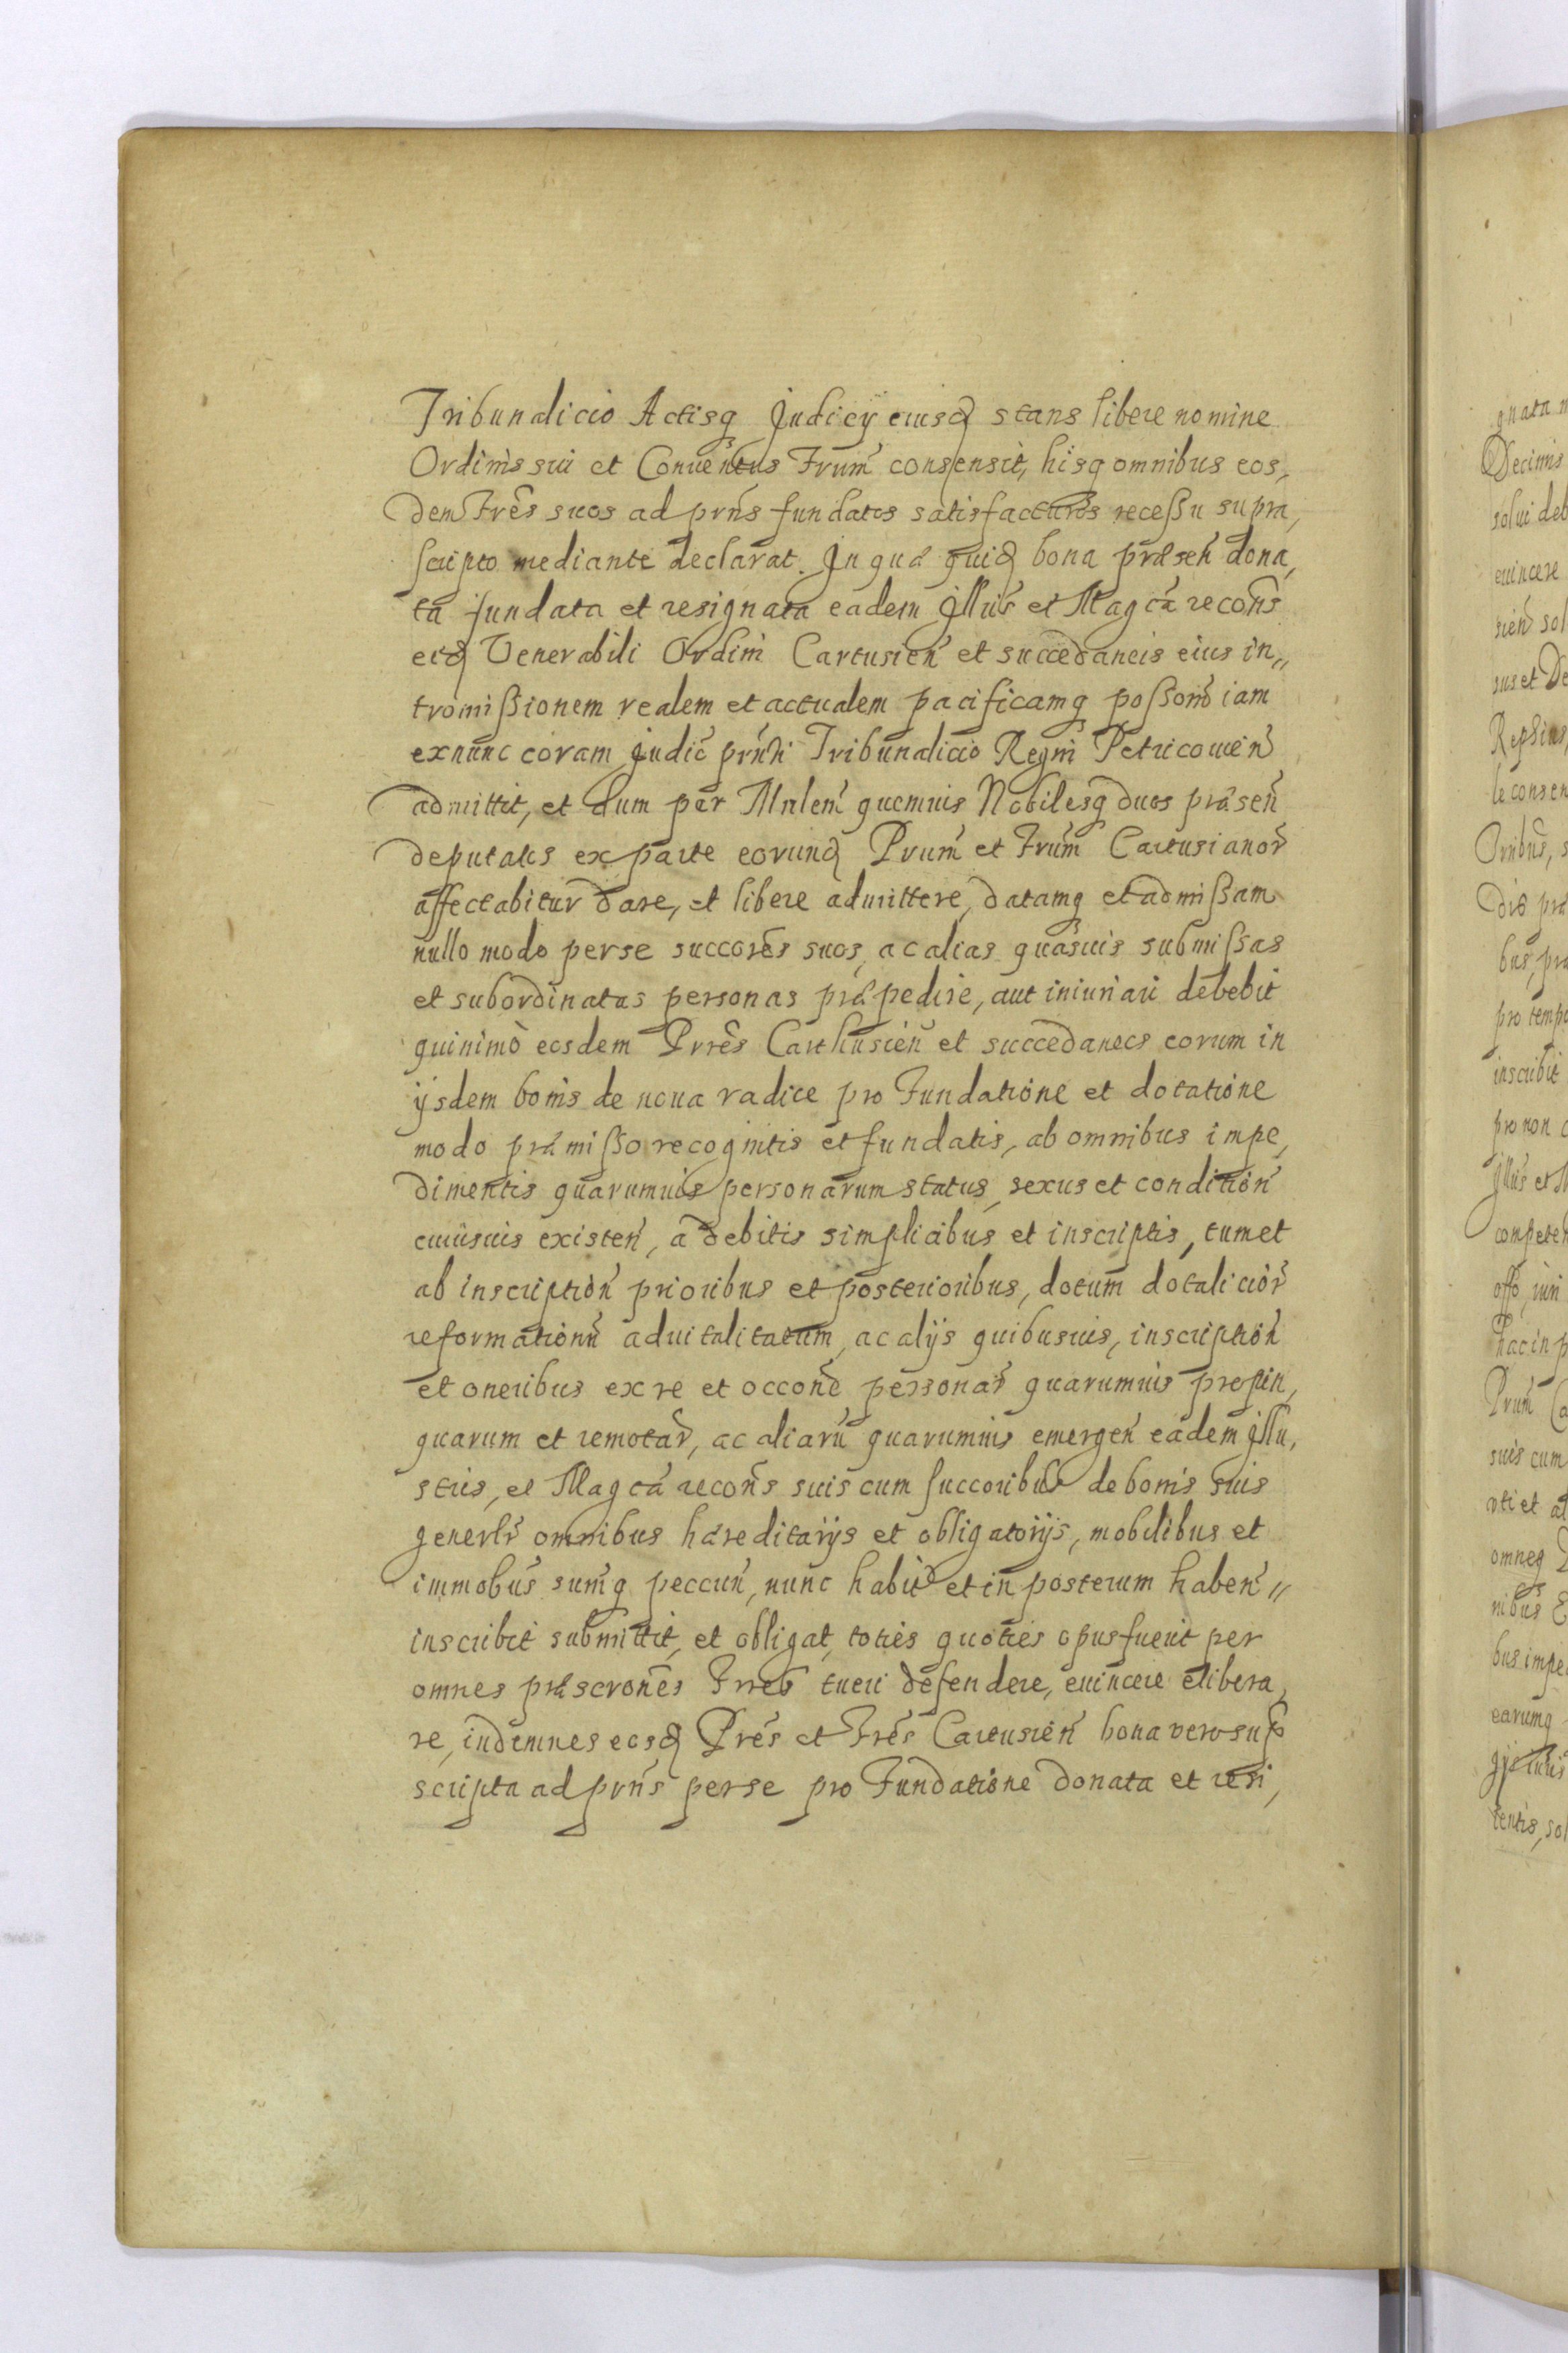 Tribunalicio Actisq Judicÿ eiusd stans libere nomine
Ordinis sui et Conuentus Frum consensit, hisq omnibus eos,
dem Fres suos ad prns fundatos satisfacturos recessu supra,
scripto mediante declarat. In qua quid bona præsen dona,
ta fundata et resignata eadem Illus et Magca recons
eid Venerabili Ordini Cartusien et succedaneis eius in„
tromissionem realem et actualem pacificamq possonem iam
exnunc coram Judic prnti Tribunalicio Regni Petricouien
admittit, et dum per Mnlem quemuis Nobilesq duos præsen
deputatos ex parte eorund Prum et Frum Cartusianor
affectabitur dare, et libere admittere, datamq et admissam
nullo modo per se succores suos, ac alias quasuis submissas
et subordinatas personas præpedire, aut iniuriari debebit
quinimò eosdem Prres Carthusien et succedaneos eorum in
ÿsdem bonis de noua radice pro Fundatione et dotatione
modo præmisso recognitis et fundatis, ab omnibus impe,
dimentis quarumuis personarum status, sexus et condition
cuiusuis existen, a debitis simplicibus et inscriptis, tum et
ab inscription prioribus et posterioribus, dotum dotalicior
reformationu aduitalitatum, ac alÿs quibusuis, inscription
et oneribus ex re et occone personar quarumuis propin,
quarum et remotar, ac aliaru quarumuis emergen eadem Illu,
stris, et Magca recons suis cum succoribus de bonis suis
generlr omnibus hæreditarÿs et obligatorÿs, mobilibus et
immobus sumq peccun, nunc habit et in posterum haben„
inscribit submittit, et obligat, toties quoties opus fuerit per
omnes præscrones Frres tueri defendere, euincere et libera,
re, indemnes eosd Pres et Fres Cartusien bona vero sup
scripta ad prns per se pro Fundatione donata et resi,